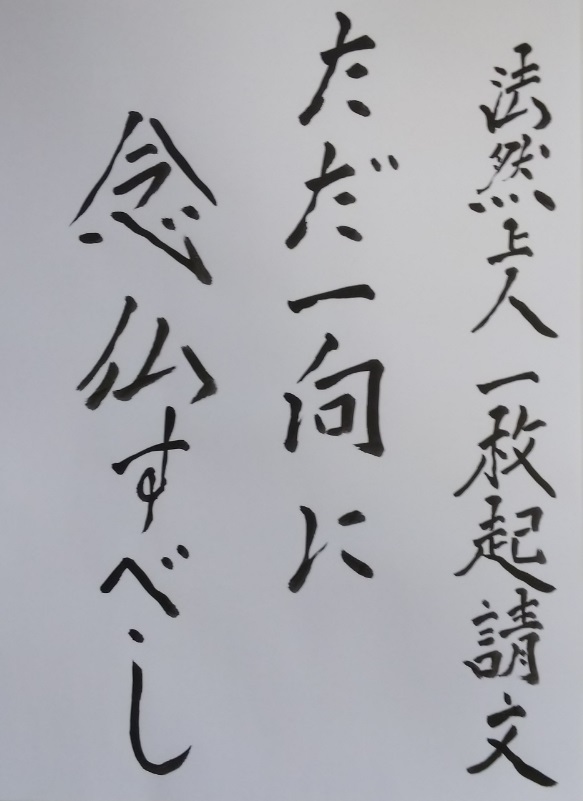 法然上人一枚起請文
ただ一向に
念仏すべし